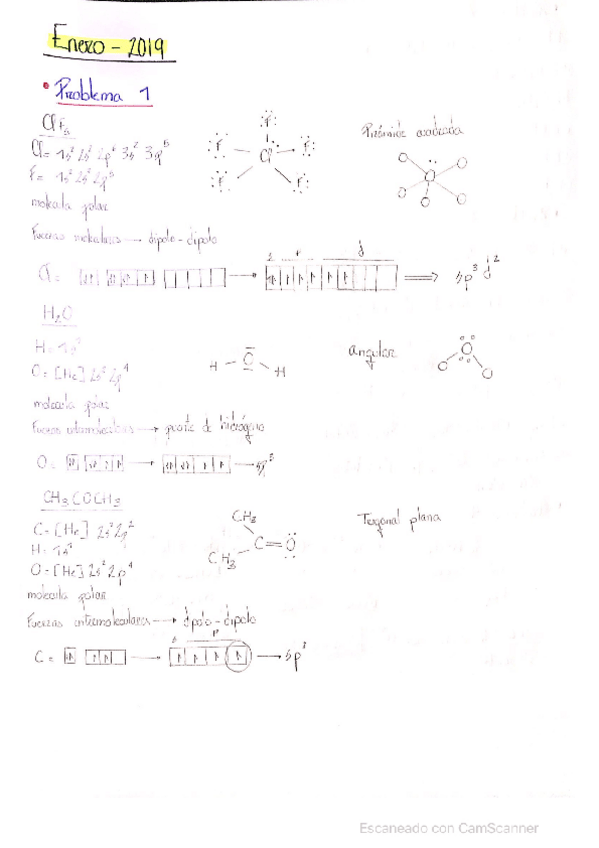 Enero - 2019
• Problema 1
ClF₅
Cl = 1s² 2s² 2p⁶ 3s² 3p⁵
F = 1s² 2s² 2p⁵
molecula polar
Fuerzas moleculares → dipolo - dipolo
Pirámide cuadrada
F F Cl F F F
Cl = → s p d ⇒ sp³d²
H₂O
H = 1s¹
O = [He] 2s² 2p⁴
molecula polar
Fuerzas intermoleculares → puente de hidrógeno
H - O - H
angular
O = → → sp³
CH₃COCH₃
C = [He] 2s² 2p²
H = 1s¹
O = [He] 2s² 2p⁴
molecula polar
Fuerzas intermoleculares → dipolo - dipolo
CH₃
C = O
CH₃
Trigonal plana
C = → s p → sp²
Escaneado con CamScanner